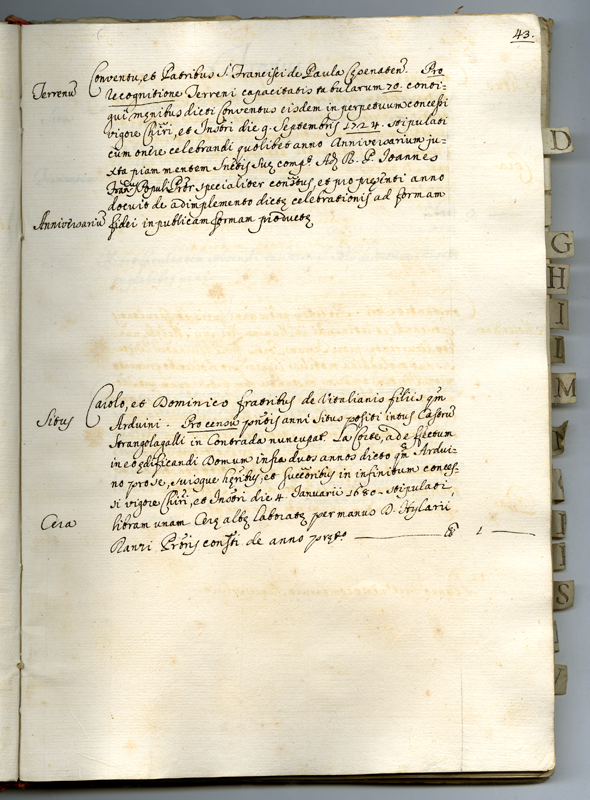 43.
Conventu, et Patribus S. Francisci de Paula Cępenaten. Pro
Terrenum
recognitione Terreni capacitatis tabularum 70. conti-
guì męnibus dicti Conventus eisdem in perpetuum concessi
vigore Chiri, et Instri die 9. Septembris 1724. stipulati
cum onere celebrandi quolibet anno Anniversarium ju-
xta piam mentem
Joannes
specialiter constitus, et pro pręsenti anno
docuit de adimplemento dictę celebrationis ad formam
Anniversarium
fidei in publicam formam productę
Carolo, et Dominico fratribus de Vitalianis filiis qm
Situs
Arduini. Pro censu pntis anni Situs positi intus Castrum
Strangolagalli in Contrada nuncupat. La Corte, ad effectum
in eo ędificandi Domum infra duos annos dicto qm Ardui-
no pro se, suisque hęribus, et succribus in infinitum conces-
si vigore Chiri, et Instri die 4. Januarii 1680. stipulati
Cera
libram unam Cerę albę laboratę per manus D. Hylarii
Ranzi Prris constti de anno pręto. 1
D
G
H
I
L
M
S
V